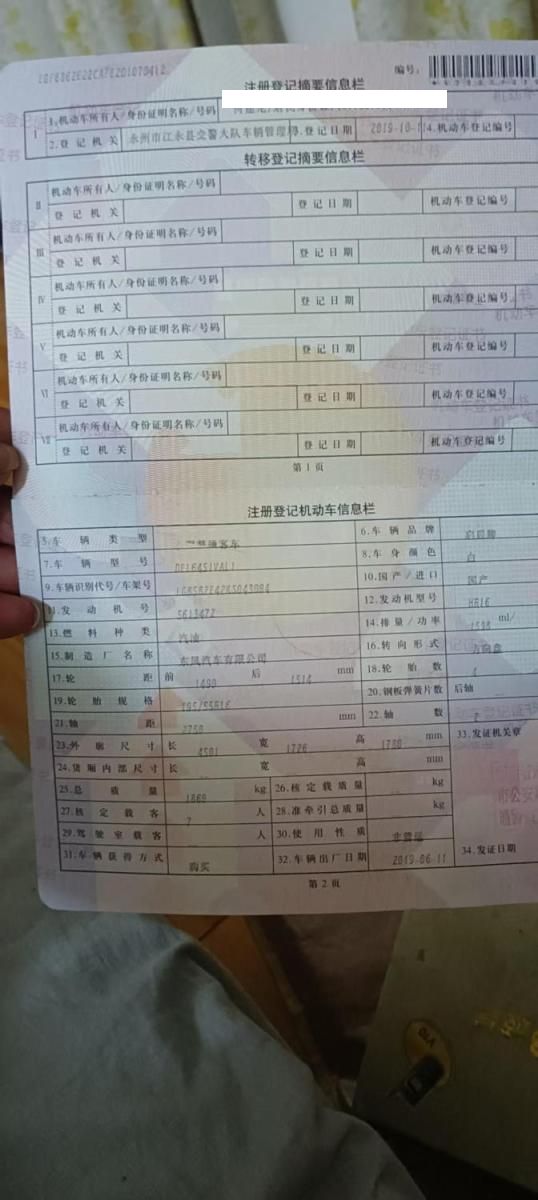 编号:
注册登记摘要信息栏
I 1.机动车所有人/身份证明名称/号码
2.登记机关 永州市江永县交警大队车辆管理 3.登记日期 2019-10- 4.机动车登记编号
转移登记摘要信息栏
II 机动车所有人/身份证明名称/号码
登记机关 登记日期 机动车登记编号
III 机动车所有人/身份证明名称/号码
登记机关 登记日期 机动车登记编号
IV 机动车所有人/身份证明名称/号码
登记机关 登记日期 机动车登记编号
V 机动车所有人/身份证明名称/号码
登记机关 登记日期 机动车登记编号
VI 机动车所有人/身份证明名称/号码
登记机关 登记日期 机动车登记编号
VII 机动车所有人/身份证明名称/号码
登记机关 登记日期 机动车登记编号
第1页
注册登记机动车信息栏
5.车辆类型 普通客车 6.车辆品牌 启辰牌
7.车辆型号 8.车身颜色 白
9.车辆识别代号/车架号 10.国产/进口 国产
11.发动机号 12.发动机型号 HR16
13.燃料种类 汽油 14.排量/功率 1598 ml/
15.制造厂名称 东风汽车有限公司 16.转向形式 方向盘
17.轮距 前 1490 后 1514 mm 18.轮胎数 4
19.轮胎规格 195/55R16 20.钢板弹簧片数 后轴
21.轴距 2750 mm 22.轴数 2
23.外廓尺寸 长 4501 宽 1726 高 mm 33.发证机关章
24.货厢内部尺寸 长 宽 高 mm
25.总质量 1869 kg 26.核定载质量 kg
27.核定载客 7 人 28.准牵引总质量 kg
29.驾驶室载客 人 30.使用性质 非营运
31.车辆获得方式 购买 32.车辆出厂日期 2019-06-11 34.发证日期
第2页